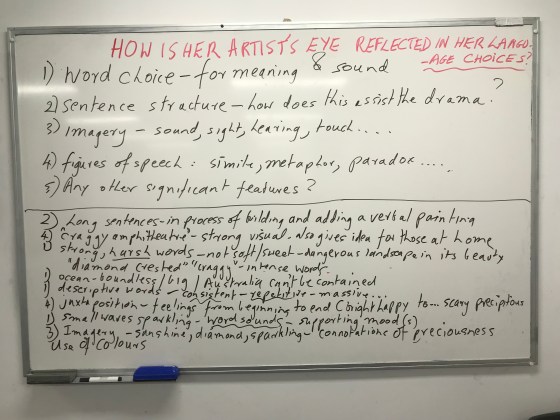 HOW IS HER ARTIST'S EYE REFLECTED IN HER LANGU-
-AGE CHOICES?
1) Word choice – for meaning & sound
2) Sentence structure – how does this assist the drama. ?
3) Imagery – sound, sight, hearing, touch....
4) figures of speech : simile, metaphor, paradox ....
5) Any other significant features?
2) Long sentences – in process of bilding and adding a verbal painting
4) "craggy amphitheatre" – strong visual. also gives idea for those at home
1) strong, harsh words – not soft/sweet – dangerous landscape in its beauty
"diamond crested" "craggy" – intense words.
1) ocean – boundless / big / Australia can't be contained
1) descriptive words – consistent – repetitive – massive...
4) juxtaposition – feelings from beginning to end (bright happy to... scary precipitous
1) small waves sparkling – word sounds – supporting mood(s)
3) Imagery – sunshine, diamond, sparkling – connotations of preciousness
Use of Colours